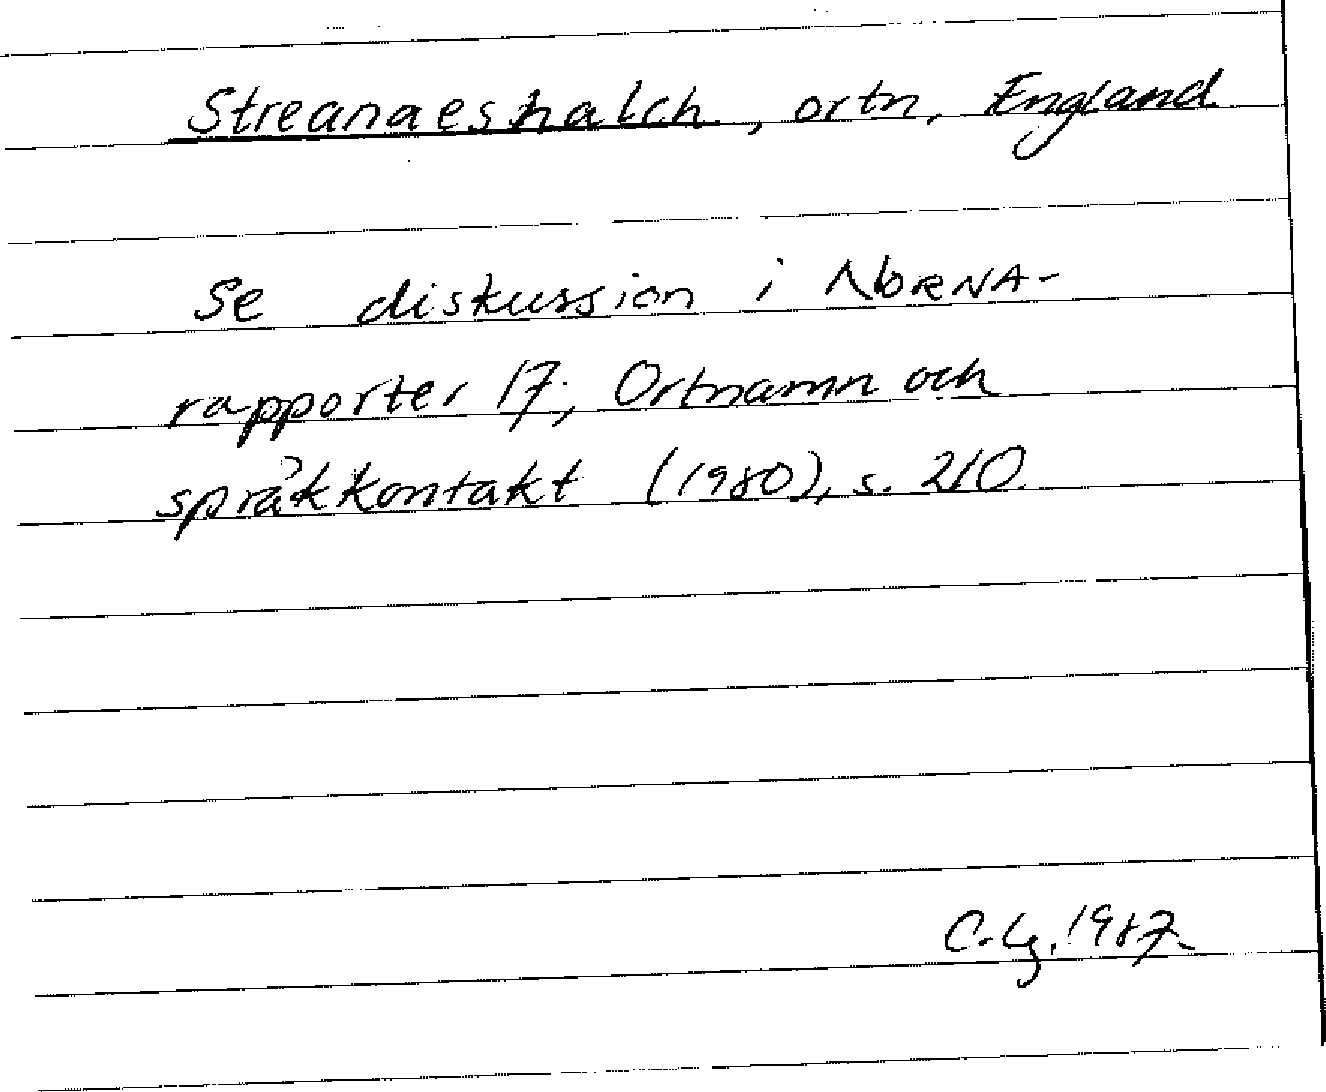 Streanaeshalch, ortn, England
Se diskussion i NORNA-
rapporter 17, Ortnamn och
språkkontakt (1980), s. 210.
C. Lg. 1987.